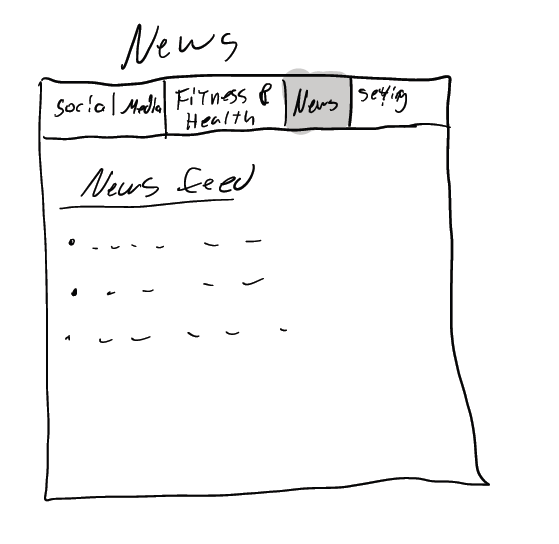 News
Social Media
Fitness &
Health
News
setting
News feed